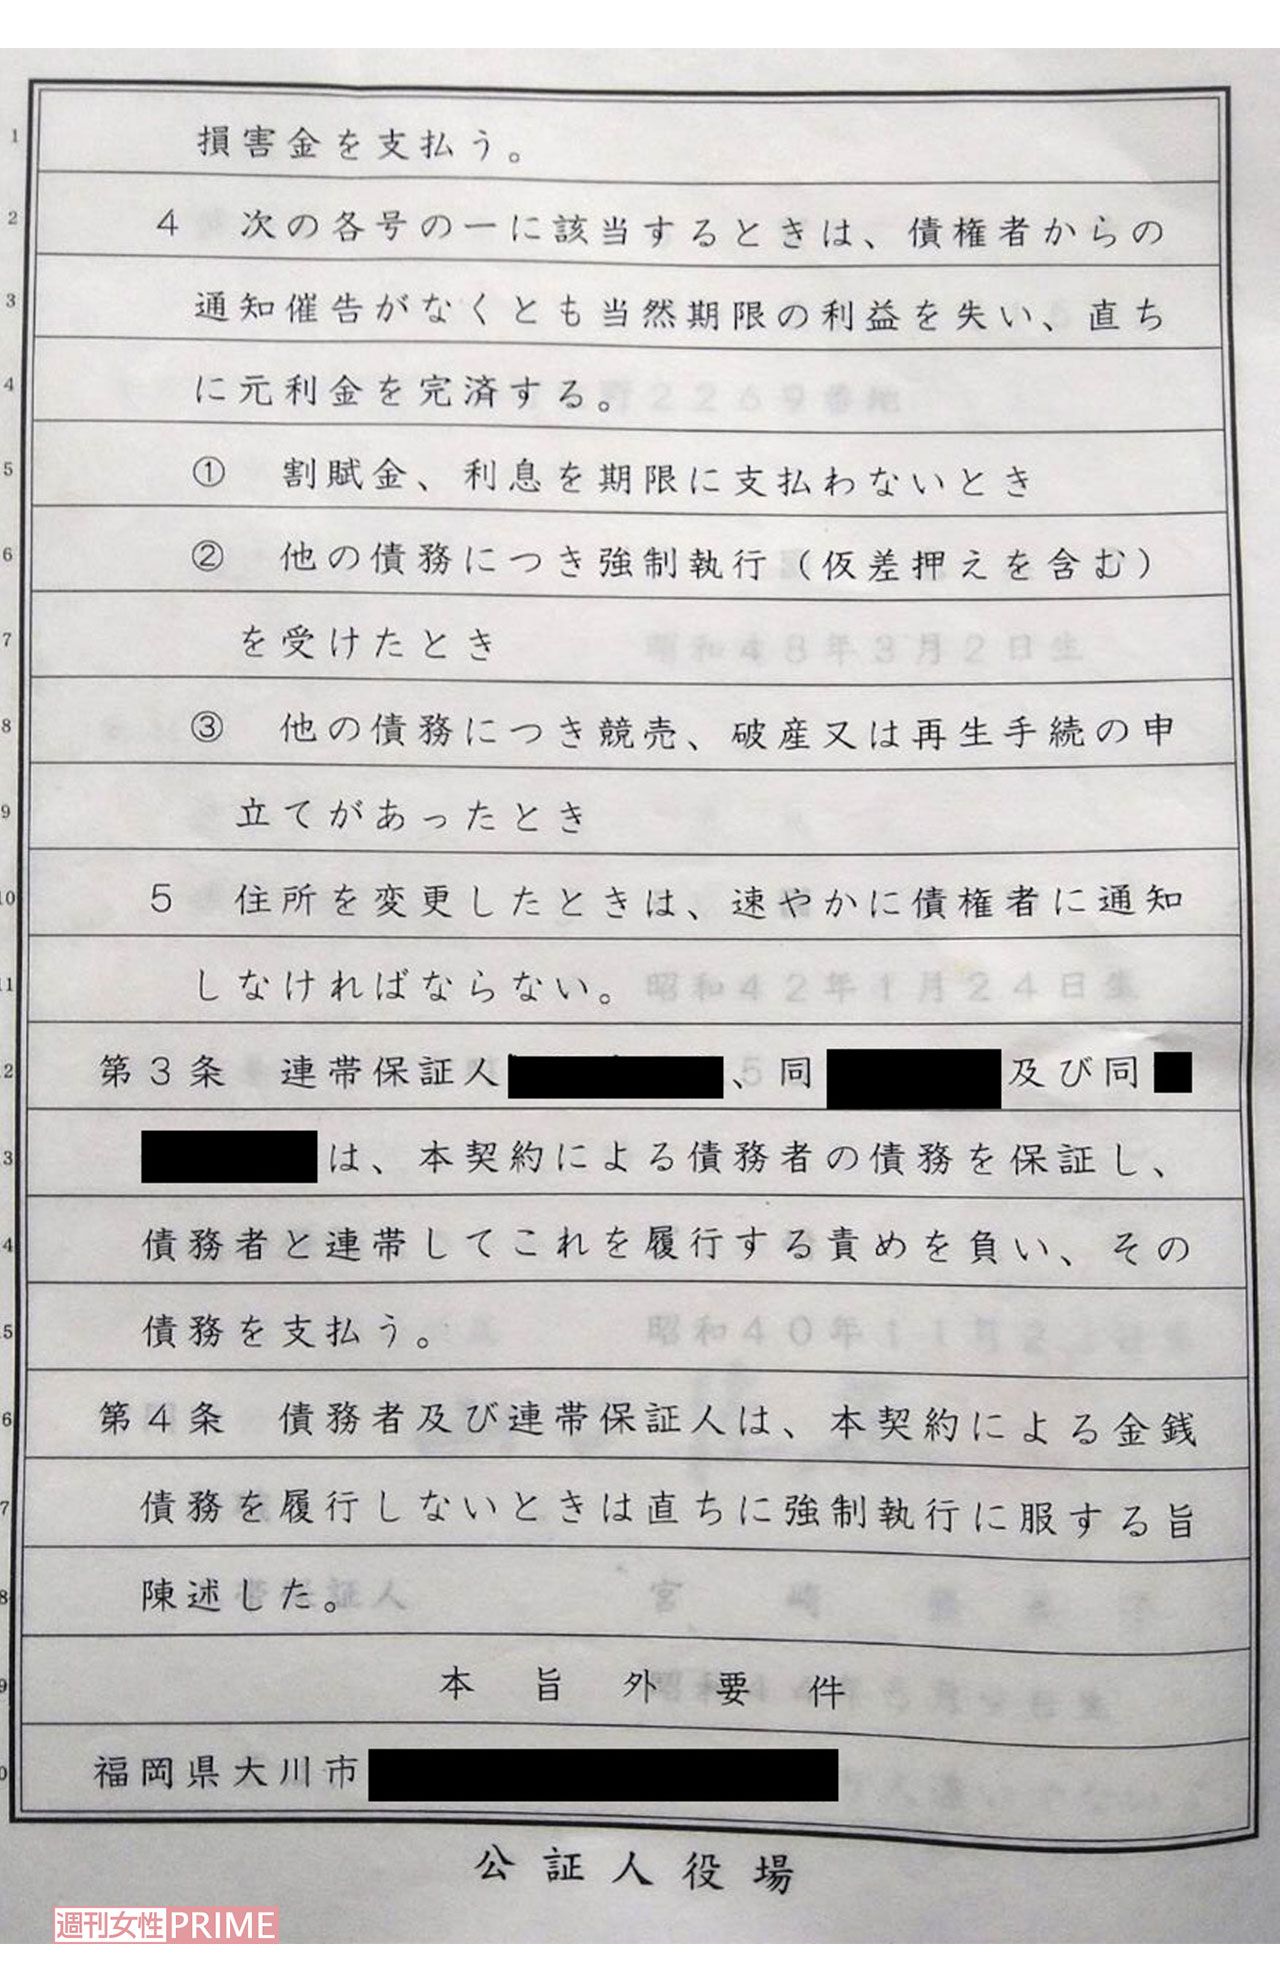 1 損害金を支払う。
2 4 次の各号の一に該当するときは、債権者からの
3 通知催告がなくとも当然期限の利益を失い、直ち
4 に元利金を完済する。
5 ① 割賦金、利息を期限に支払わないとき
6 ② 他の債務につき強制執行（仮差押えを含む）
7 を受けたとき
8 ③ 他の債務につき競売、破産又は再生手続の申
9 立てがあったとき
10 5 住所を変更したときは、速やかに債権者に通知
11 しなければならない。
2 第3条 連帯保証人、同及び同
3 は、本契約による債務者の債務を保証し、
4 債務者と連帯してこれを履行する責めを負い、その
5 債務を支払う。
6 第4条 債務者及び連帯保証人は、本契約による金銭
7 債務を履行しないときは直ちに強制執行に服する旨
8 陳述した。
9 本旨外要件
0 福岡県大川市
公証人役場
週刊女性PRIME